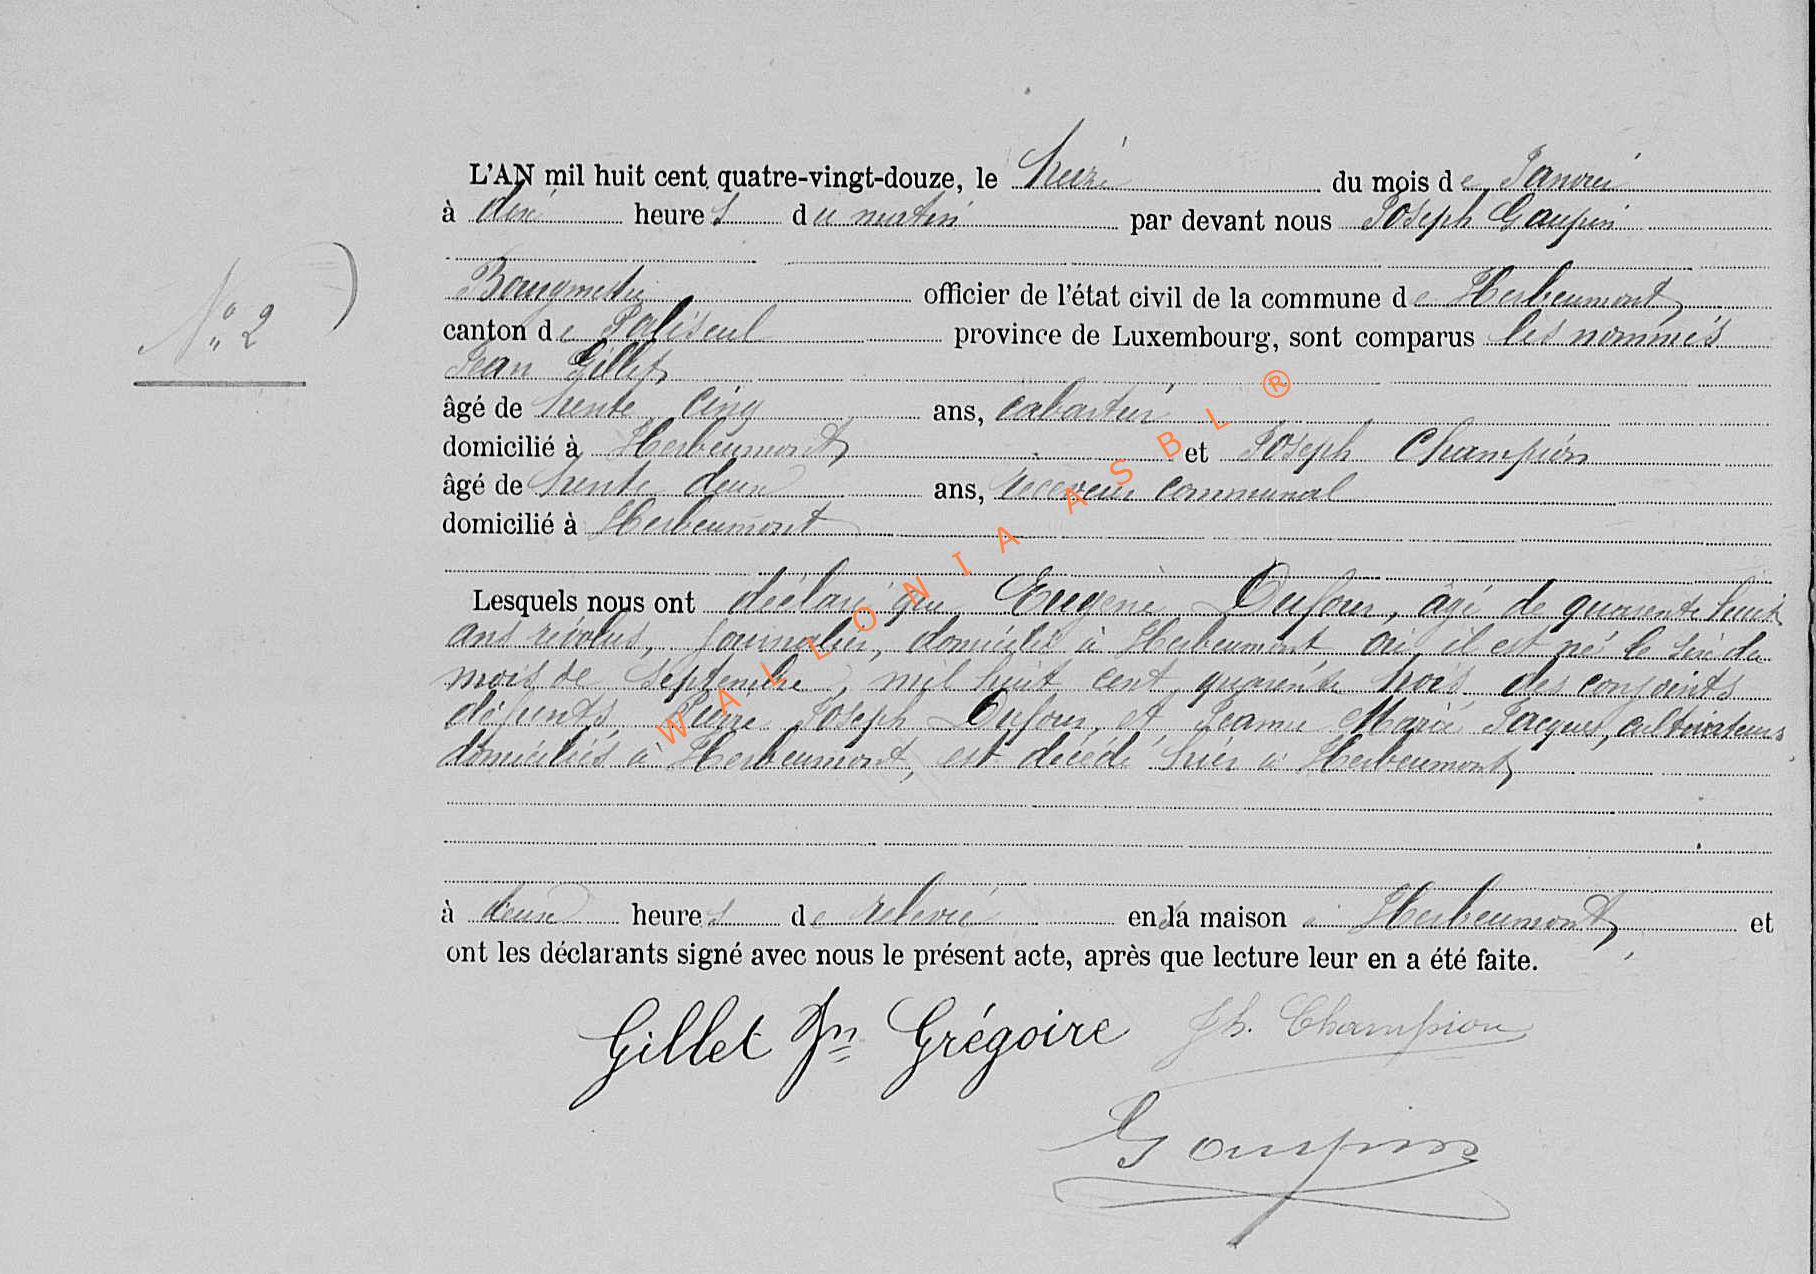 L'AN mil huit cent quatre-vingt-douze, le treize du mois de Janvier
à dix heures du matin par devant nous Joseph Goupin
Bourgmestre officier de l'état civil de la commune de Herbeumont
N° 2
canton de Paliseul province de Luxembourg, sont comparus les nommés
Jean Gillet
âgé de trente cinq ans, cabartier
domicilié à Herbeumont et Joseph Champion
âgé de trente deux ans, receveur communal
domicilié à Herbeumont
Lesquels nous ont déclaré que Eugène Dufour, âgé de quarante huit
ans révolus, journalier, domicilié à Herbeumont où il est né le six du
mois de Septembre, mil huit cent quarante trois des conjoints
défunts Pierre Joseph Dufour et Jeanne Marie Jacques, cultivateurs
domiciliés à Herbeumont, est décédé hier à Herbeumont
à deux heures de relevée en la maison à Herbeumont, et
ont les déclarants signé avec nous le présent acte, après que lecture leur en a été faite.
Gillet Jn Grégoire Jh. Champion
Goupin
WALLONIA ASBL ®